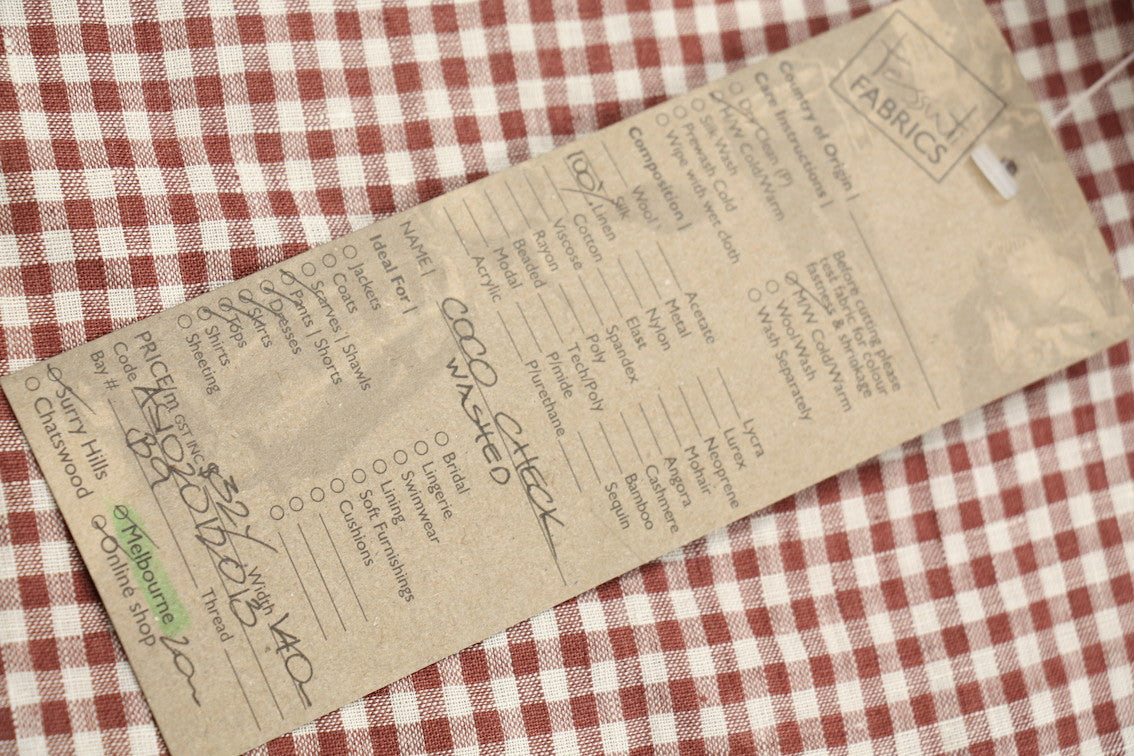 Tessuti
FABRICS
Country of Origin |
Care Instructions |
Before cutting please
test fabric for colour
fastness & shrinkage
Dry Clean (P)
H/W Cold/Warm
Silk Wash
Prewash Cold
Wipe with wet cloth
M/W Cold/Warm
Wool Wash
Wash Separately
Composition |
Wool
Silk
100% Linen
Cotton
Viscose
Rayon
Beaded
Modal
Acrylic
Acetate
Metal
Nylon
Elast
Spandex
Poly
Tech/Poly
P/mide
P/urethane
Lycra
Lurex
Neoprene
Mohair
Angora
Cashmere
Bamboo
Sequin
NAME | COCO CHECK
WASHED
Ideal For |
Jackets
Coats
Scarves | Shawls
Pants | Shorts
Dresses
Skirts
Tops
Shirts
Sheeting
Bridal
Lingerie
Swimwear
Lining
Soft Furnishings
Cushions
PRICE/m GST INC $32/ Width 140
Code
Bay # Thread
Surry Hills
Chatswood
Melbourne 20m
Online shop